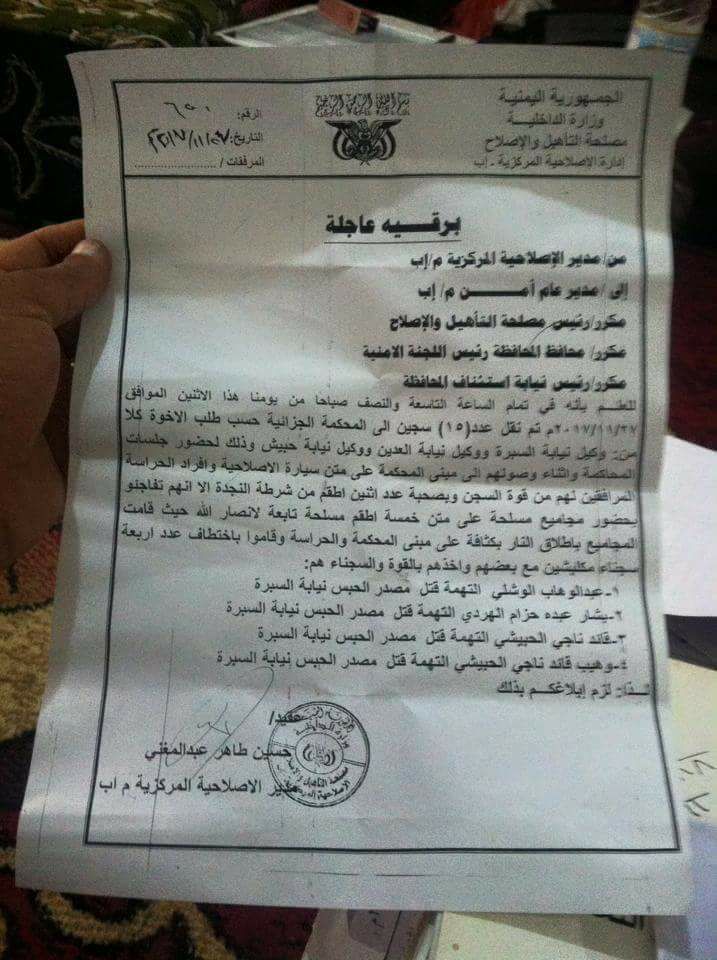 الجمهورية اليمنية
وزارة الداخلية
مصلحة التأهيل والإصلاح
إدارة الاصلاحية المركزية - إب
الرقم: ٦٥٠
التاريخ: ٢٠١٧/١١/٢٧
المرفقات /
برقيه عاجلة
من/ مدير الإصلاحية المركزية م/إب
إلى/ مدير عام أمـن م/ إب
مكرر/ رئيس مصلحة التأهيل والإصلاح
مكرر/ محافظ المحافظة رئيس اللجنة الامنية
مكرر/ رئيس نيابة استئناف المحافظة
للعلم بأنه في تمام الساعة التاسعة والنصف صباحا من يومنا هذا الاثنين الموافق
٢٠١٧/١١/٢٧م تم نقل عدد(١٥) سجين الى المحكمة الجزائية حسب طلب الاخوة كلا
من:- وكيل نيابة السبرة ووكيل نيابة العدين ووكيل نيابة حبيش وذلك لحضور جلسات
المحاكمة واثناء وصولهم الى مبنى المحكمة على متن سيارة الاصلاحية وافراد الحراسة
المرافقين لهم من قوة السجن وبصحبة عدد اثنين اطقم من شرطة النجدة الا انهم تفاجئو
بحضور مجاميع مسلحة على متن خمسة اطقم مسلحة تابعة لانصار الله حيث قامت
المجاميع باطلاق النار بكثافة على مبنى المحكمة والحراسة وقاموا باختطاف عدد اربعة
سجناء مكلبشين مع بعضهم واخذهم بالقوة والسجناء هم:
١-عبدالوهاب الوشلي التهمة قتل مصدر الحبس نيابة السبرة
٢-بشار عبده حزام الهردي التهمة قتل مصدر الحبس نيابة السبرة
٣-قائد ناجي الحبيشي التهمة قتل مصدر الحبس نيابة السبرة
٤-وهيب قائد ناجي الحبيشي التهمة قتل مصدر الحبس نيابة السبرة
لذا: لزم إبلاغكم بذلك
عقيد/
حسين طاهر عبدالمغني
مدير الاصلاحية المركزية م اب